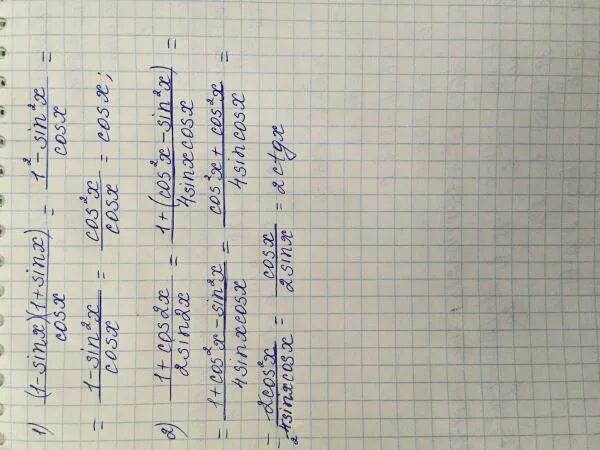 1) (1-sinx)(1+sinx)/cosx = 1²-sin²x/cosx =
= 1-sin²x/cosx = cos²x/cosx = cosx;
2) 1+cos2x/2sin2x = 1+(cos²x-sin²x)/4sinxcosx =
= 1+cos²x-sin²x/4sinxcosx = cos²x+cos²x/4sincosx =
= 2cos²x/4sinxcosx 2 = cosx/2sinx = 2ctgx